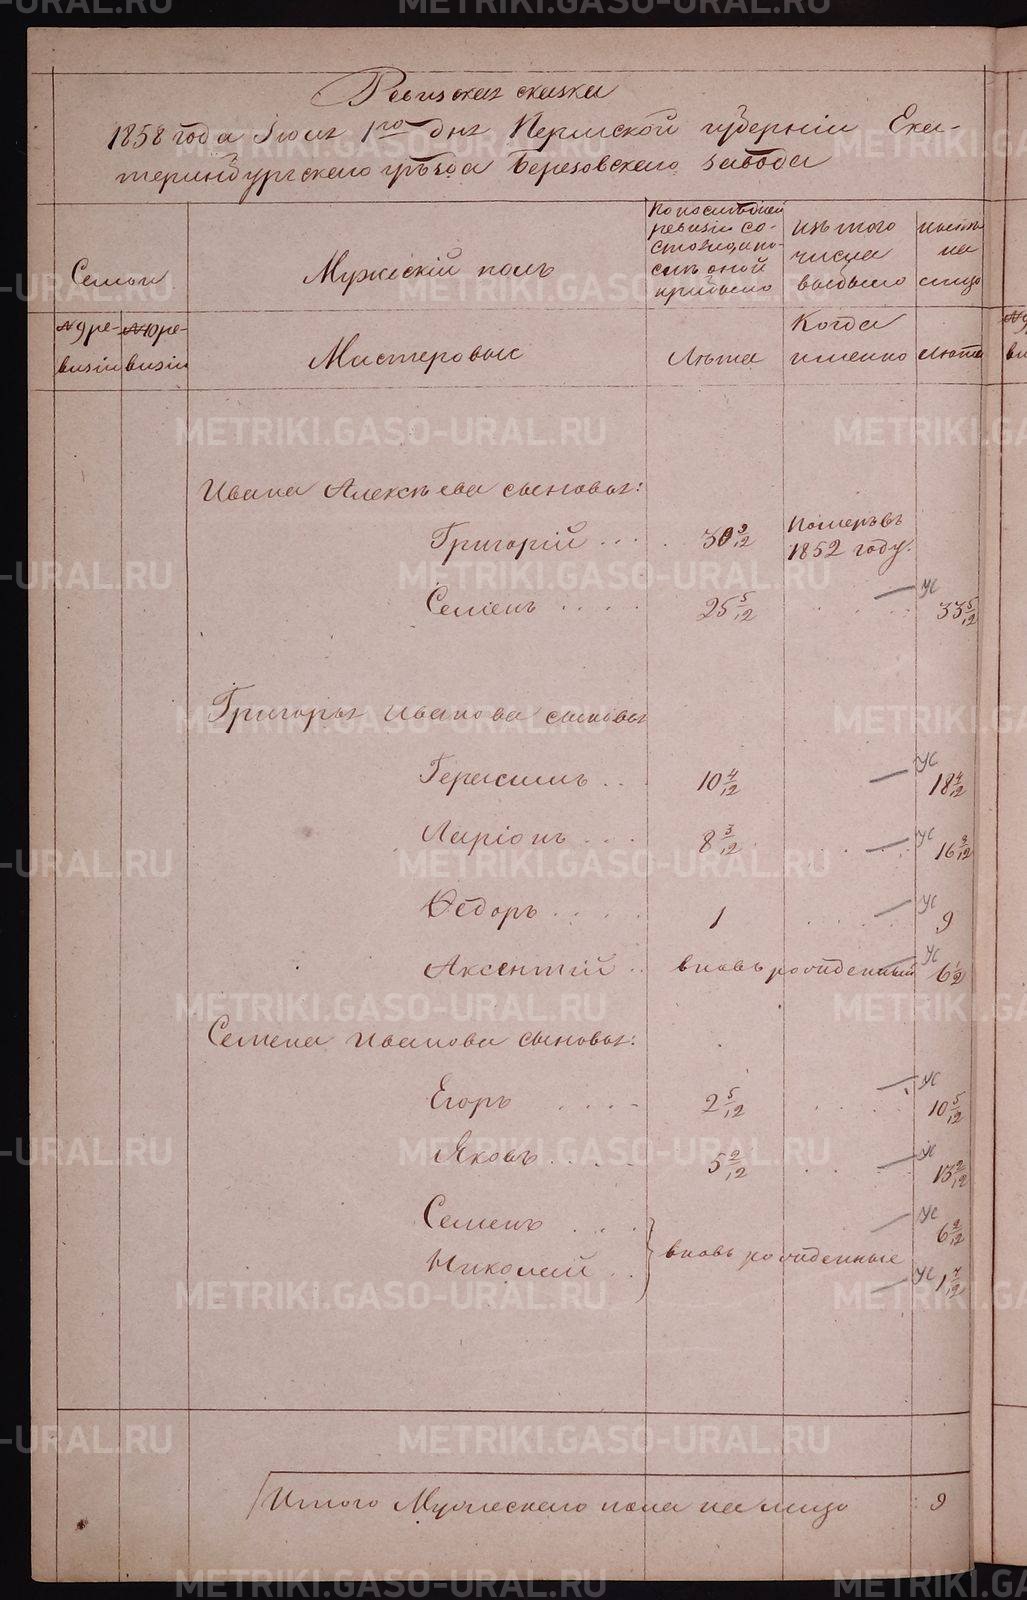 Ревизская сказка
1858 года Июля 1го дня Пермской губерніи Ека-
теринбургскаго уѣзда Березовскаго завода
Семьи
Мужескій полъ
По послѣдней ревизіи со-стояло, и по-слѣ оной прибыло
Изъ того числа выбыло
Нынѣ на лицо
№ 9 ре-визіи
№ 10 ре-визіи
Мастеровые
Лѣта
Когда именно
Лѣта
Ивана Алексѣева сыновья:
Григорій . . . . 30 3/12 Померъ въ 1852 году.
Семенъ . . . . 25 5/12 — УК 33 5/12
Григорья Иванова сыновья
Герасимъ . . 10 4/12 — УК 18 4/12
Ларіонъ . . . 8 3/12 — УК 16 3/12
Ѳедоръ . . . . 1 — УК 9
Аксентій . . вновь рожденный УК 6 1/2
Семена Иванова сыновья:
Егоръ . . . . 2 5/12 — УК 10 5/12
Яковъ . . . . 5 2/12 — УК 13 2/12
Семенъ . . . — УК 6 2/12
вновь рожденные
Николай . . — УК 1 4/12
Итого Мужескаго пола на лицо 9
METRIKI.GASO-URAL.RU